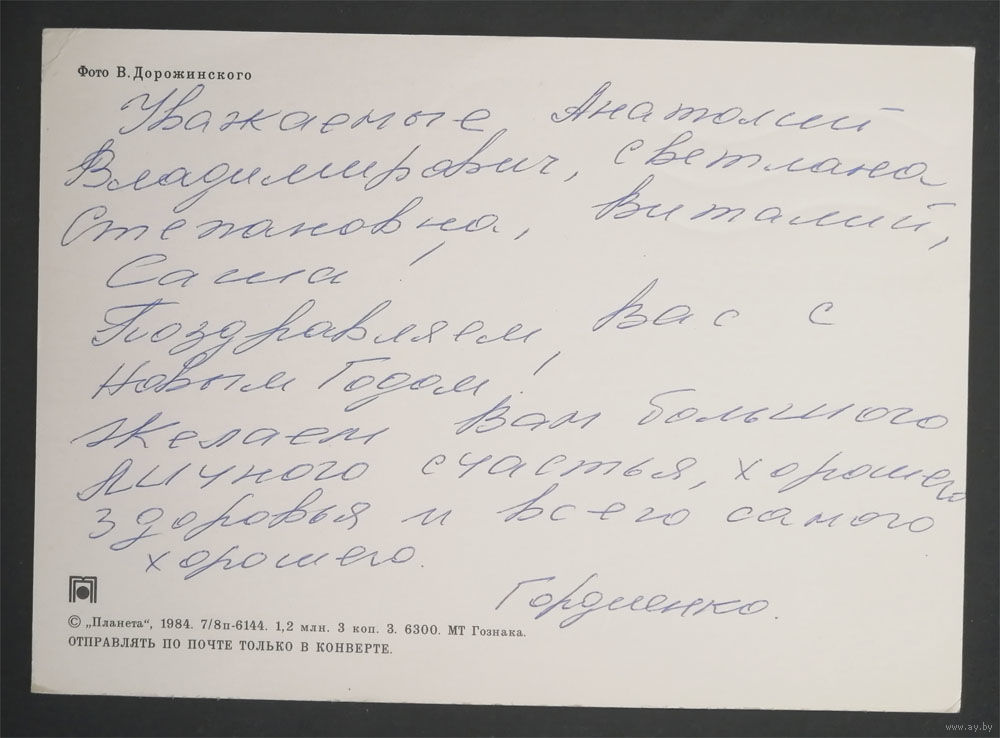 Фото В. Дорожинского
Уважаемые Анатолий
Владимирович, Светлана
Степановна, Виталий,
Саша!
Поздравляем Вас с
Новым Годом!
Желаем Вам большого
личного счастья, хорошего
здоровья и всего самого
хорошего.
Гордиенко.
© „Планета“, 1984. 7/8п-6144. 1,2 млн. 3 коп. З. 6300. МТ Гознака.
ОТПРАВЛЯТЬ ПО ПОЧТЕ ТОЛЬКО В КОНВЕРТЕ.
www.ay.by